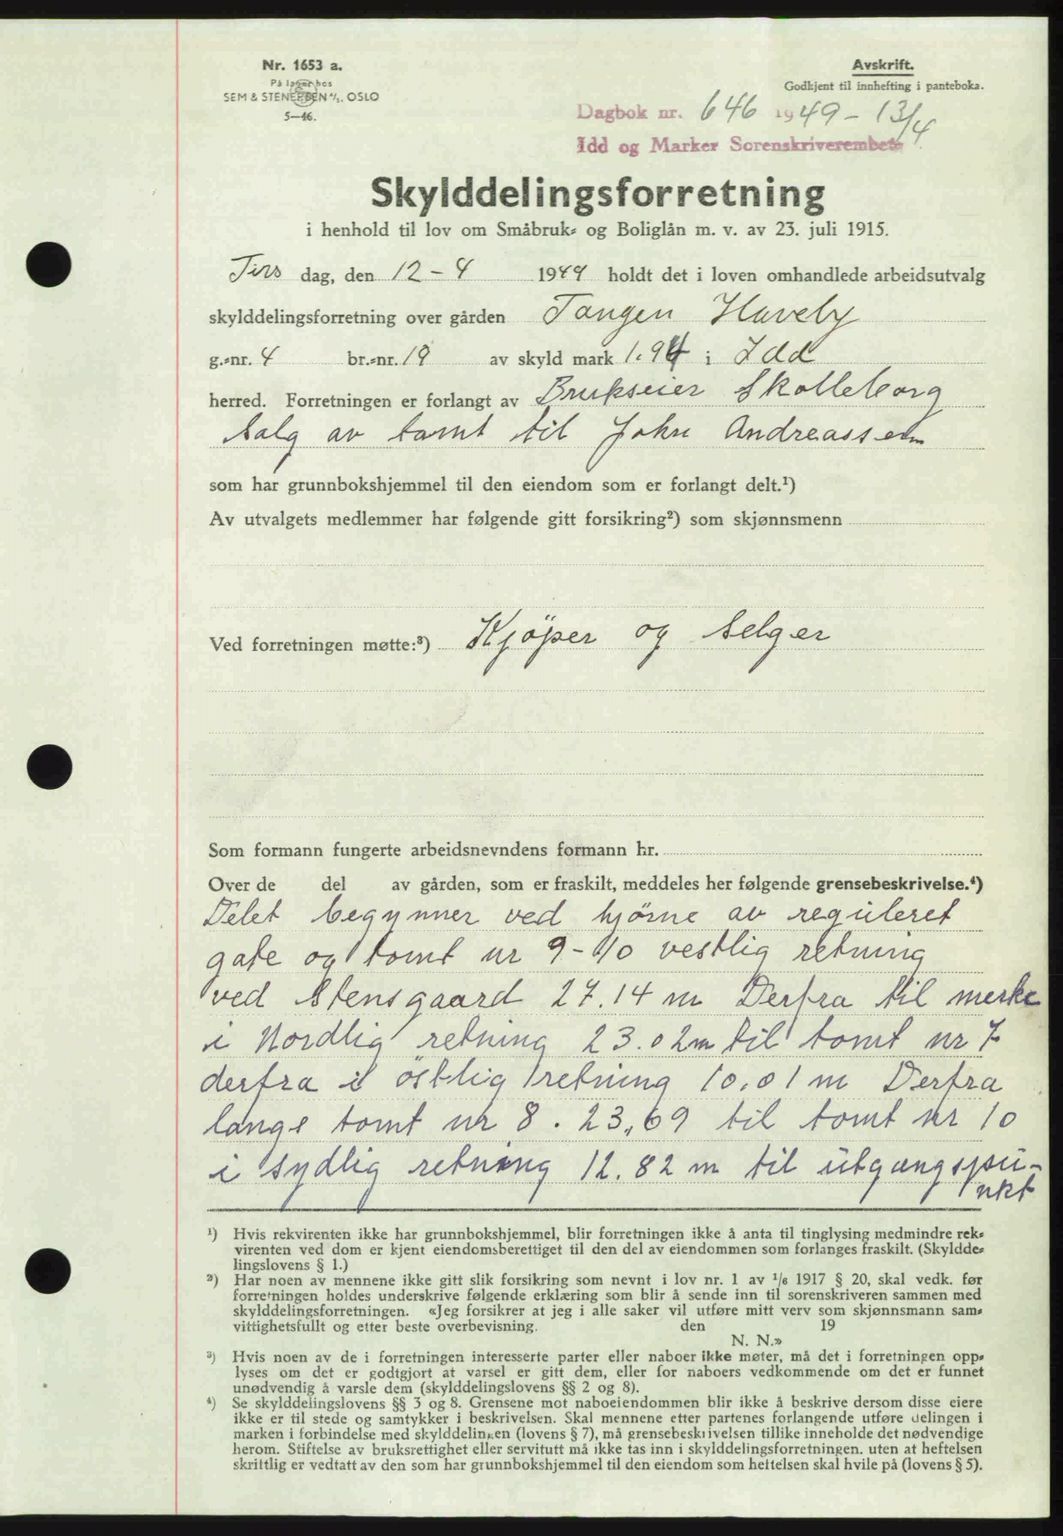 Nr. 1653 a.
På lager hos
SEM & STENERSEN A/S. OSLO
5—46.
Avskrift.
Godkjent til innhefting i panteboka.
Dagbok nr. 646 1949 - 13/4
Idd og Marker Sorenskriverembete
Skylddelingsforretning
i henhold til lov om Småbruk- og Boliglån m. v. av 23. juli 1915.
Tirs dag, den 12 - 4 1949 holdt det i loven omhandlede arbeidsutvalg
skylddelingsforretning over gården Tangen Haveby
g.-nr. 4 br.-nr. 19 av skyld mark 1.94 i Idd
herred. Forretningen er forlangt av Brukseier Skolleborg
Salg av tomt til John Andreassen
som har grunnbokshjemmel til den eiendom som er forlangt delt.¹)
Av utvalgets medlemmer har følgende gitt forsikring²) som skjønnsmenn
Ved forretningen møtte:³) Kjöper og Selger
Som formann fungerte arbeidsnevndens formann hr.
Over de del av gården, som er fraskilt, meddeles her følgende grensebeskrivelse.⁴)
Delet begynner ved hjörne av reguleret
gate og tomt nr 9-10 vestlig retning
ved Stensgaard 27.14 m Derfra til merke
i Nordlig retning 23.02 m til tomt nr 7
derfra i östlig retning 10.01 m Derfra
langs tomt nr 8 . 23,69 til tomt nr 10
i sydlig retning 12.82 m til utgangspu-
nkt
¹) Hvis rekvirenten ikke har grunnbokshjemmel, blir forretningen ikke å anta til tinglysing medmindre rek-
virenten ved dom er kjent eiendomsberettiget til den del av eiendommen som forlanges fraskilt. (Skyldde-
lingslovens § 1.)
²) Har noen av mennene ikke gitt slik forsikring som nevnt i lov nr. 1 av 1/6 1917 § 20, skal vedk. før
forretningen holdes underskrive følgende erklæring som blir å sende inn til sorenskriveren sammen med
skylddelingsforretningen. «Jeg forsikrer at jeg i alle saker vil utføre mitt verv som skjønnsmann sam-
vittighetsfullt og etter beste overbevisning. den 19
N. N.»
³) Hvis noen av de i forretningen interesserte parter eller naboer ikke møter, må det i forretningen opp-
lyses om det er godtgjort at varsel er gitt dem, eller for naboers vedkommende om det er funnet
unødvendig å varsle dem (skylddelingslovens §§ 2 og 8).
⁴) Se skylddelingslovens §§ 3 og 8. Grensene mot naboeiendommen blir ikke å beskrive dersom disse eiere
ikke er til stede og samtykker i beskrivelsen. Skal mennene etter partenes forlangende utføre delingen i
marken i forbindelse med skylddelingen (lovens § 7), må grensebeskrivelsen tillike inneholde det nødvendige
herom. Stiftelse av bruksrettighet eller servitutt må ikke tas inn i skylddelingsforretningen, uten at heftelsen
skriftlig er vedtatt av den som har grunnbokshjemmel til den eiendom som heftelsen skal hvile på (lovens § 5).